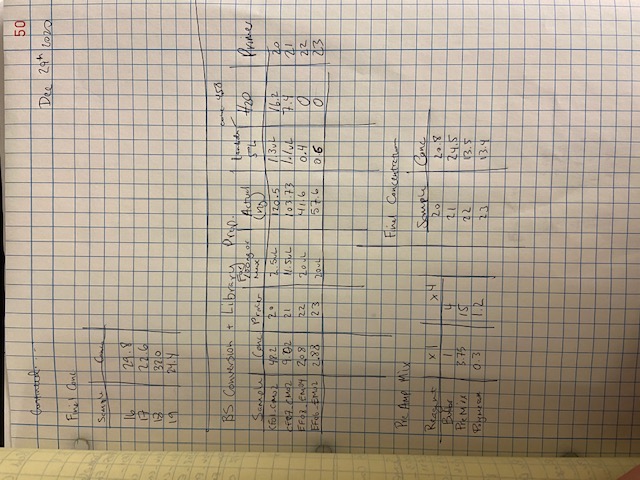 50
Continued....
Dec 29th 2020
Final Conc.
Sample Conc
16 29.8
17 22.6
18 32.0
19 24.4
BS Conversion + Library Prep.
Sample Conc Primer For 100ng or max Actual (ng) Lambda 5% H2O Primer
48.2 20 2.5uL 120.5 1.3uL 16.2 20
9.02 21 11.5uL 103.73 1.1uL 7.4 21
2.08 22 20uL 41.6 0.4 0 22
2.88 23 20uL 57.6 0.6 0 23
Pre Amp Mix
Reagent x1 x4
Buffer 1 4
PreMix 3.75 15
Polymerase 0.3 1.2
Final Concentration
Sample Conc
20 20.8
21 24.5
22 13.5
23 13.4